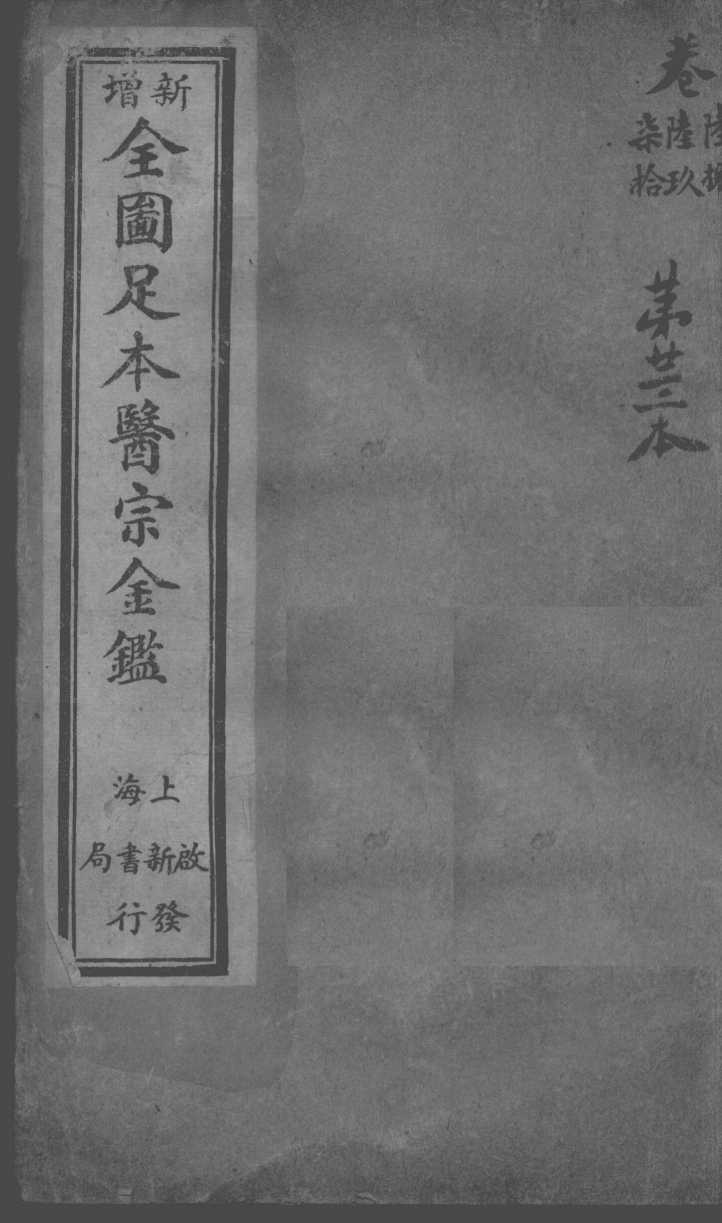 卷
陸玖
柒拾
苐廿三本
新增
全圖足本醫宗金鑑
上海
啟新書局
發行